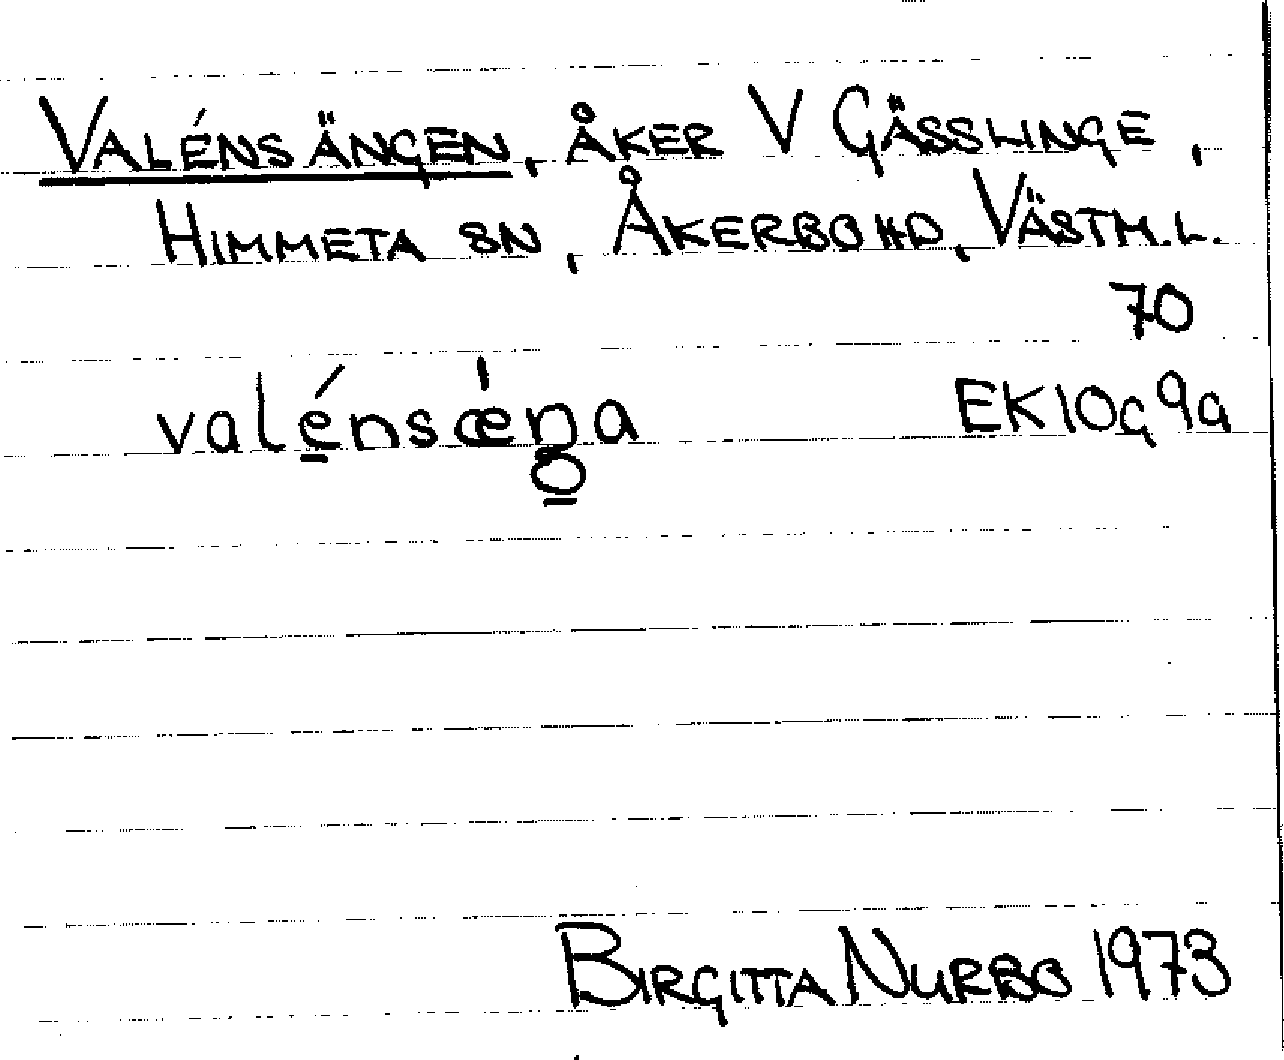 VALÉNSÄNGEN, ÅKER V GÄSSLINGE,
HIMMETA SN, ÅKERBO HD, VÄSTM.L.
70
valénsǽŋ̥a EK10g9a
BIRGITTA NURBO 1973